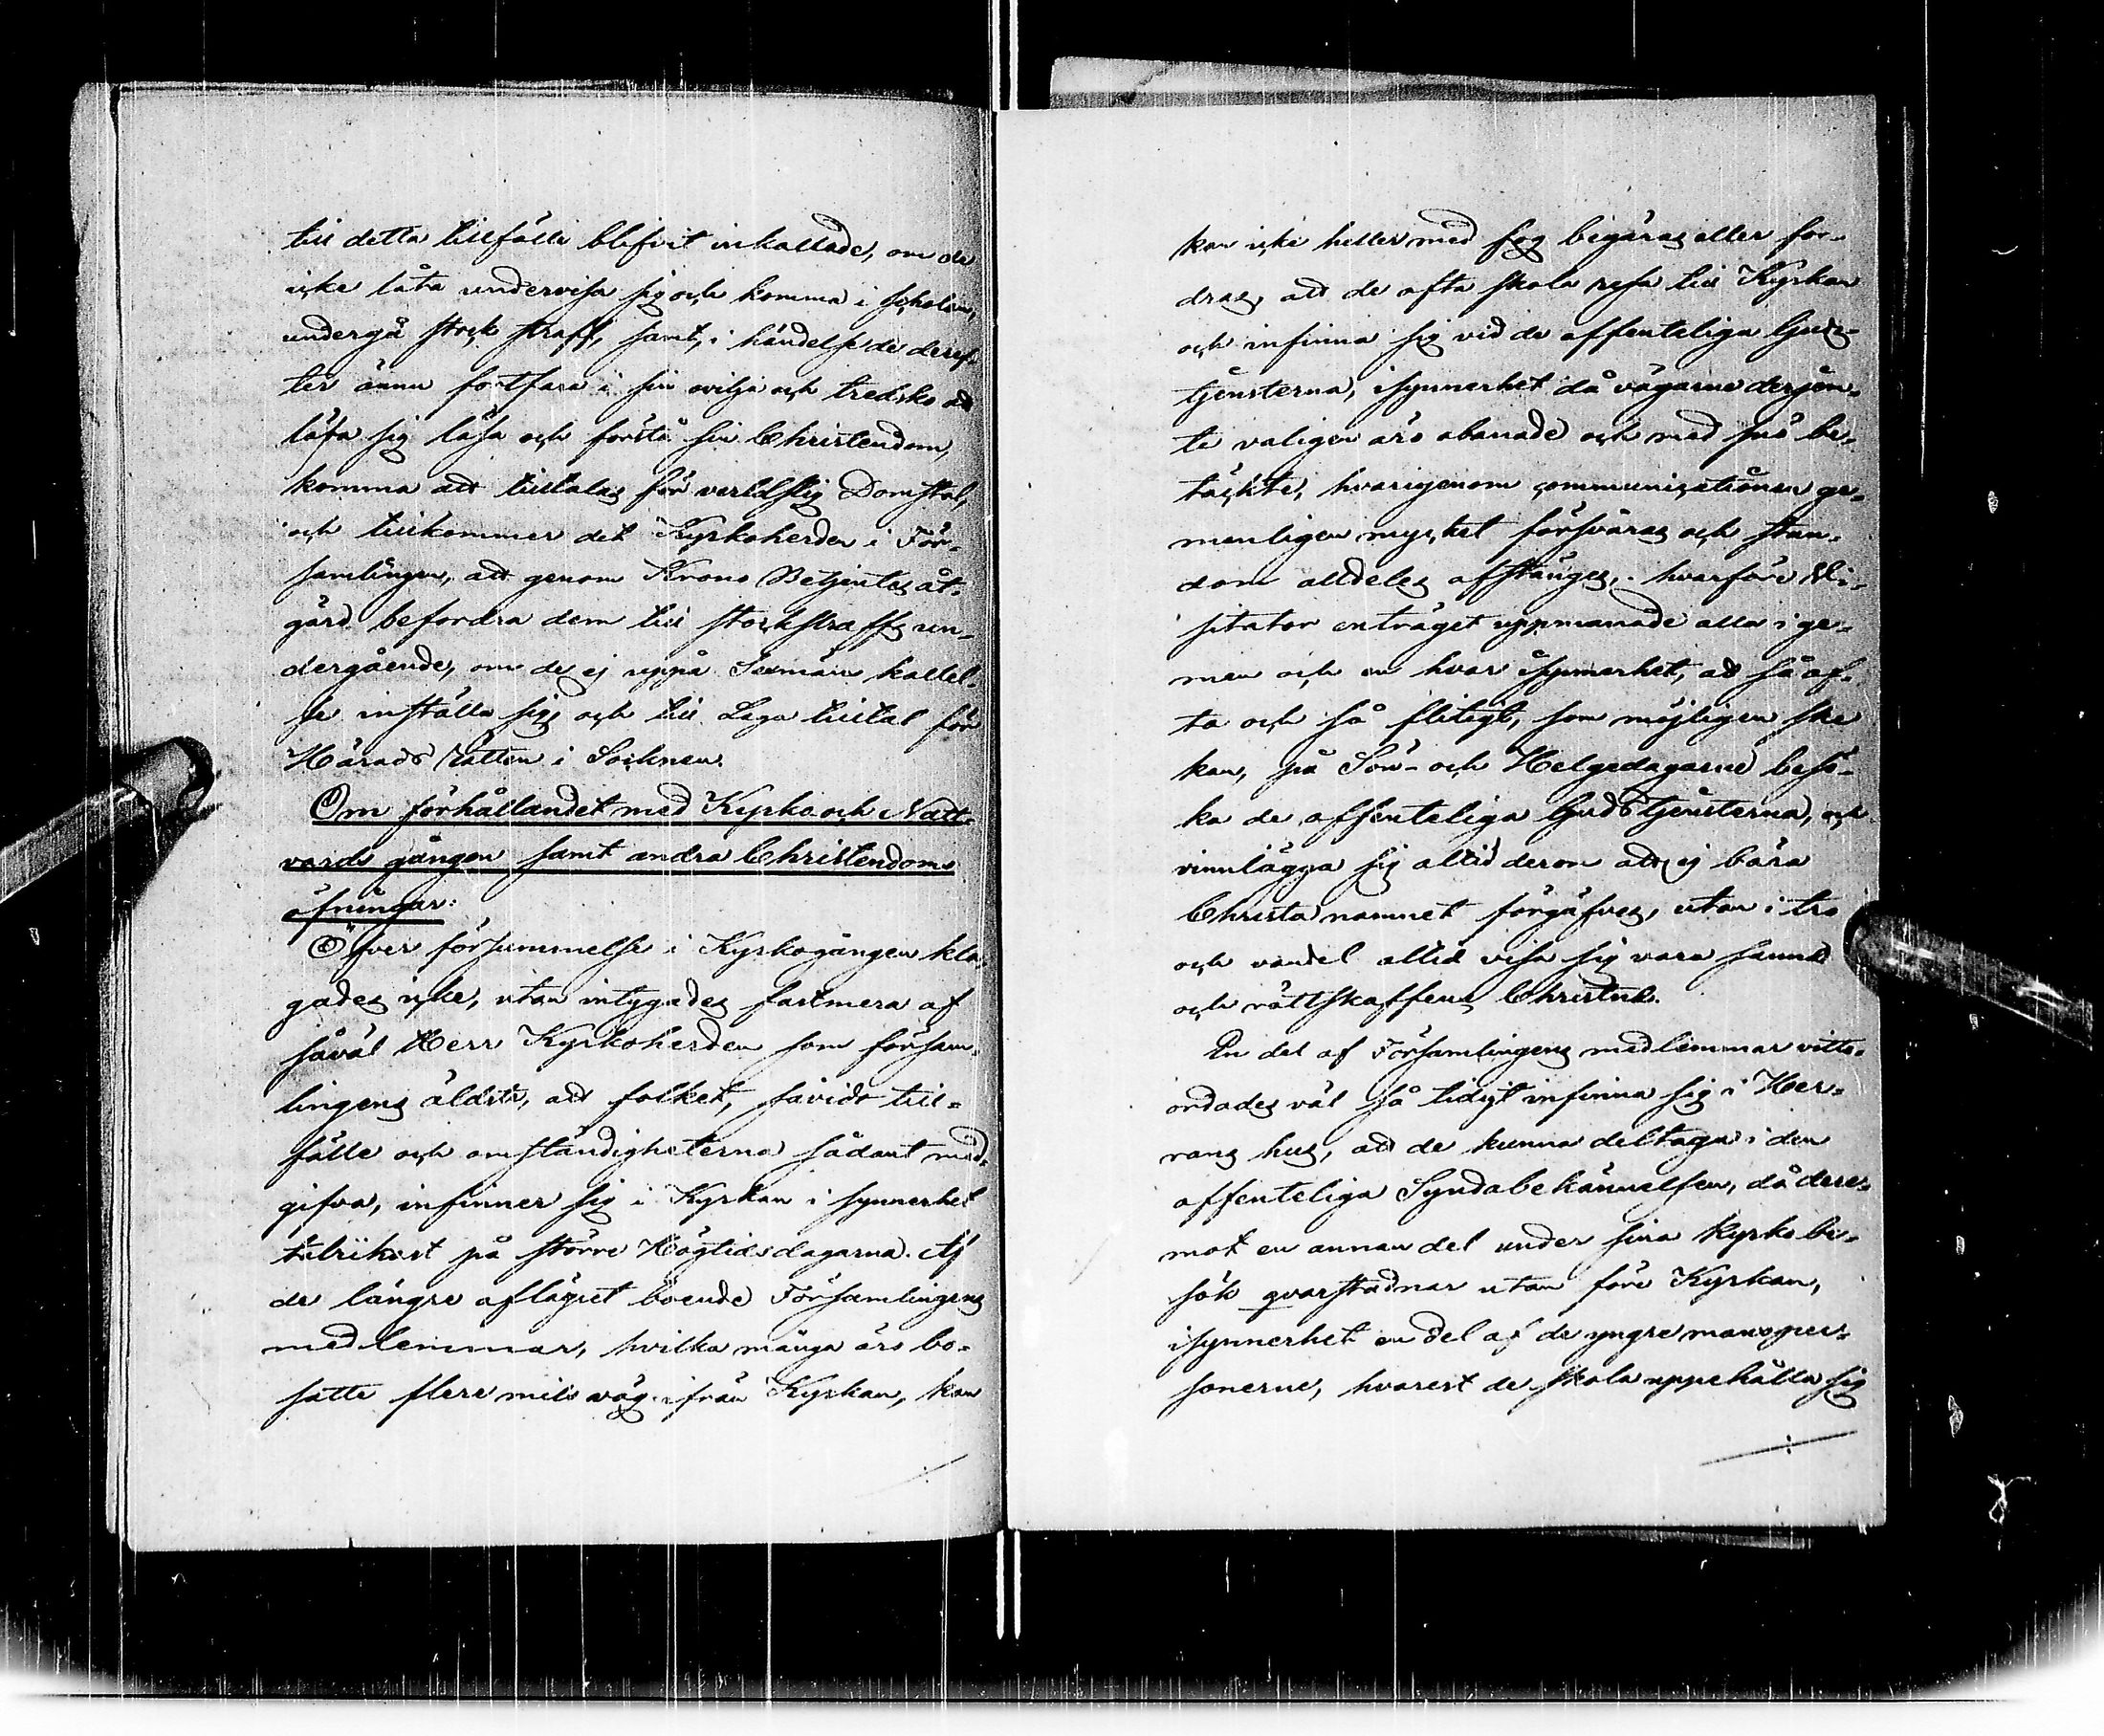 till detta tillfälle blifvit inkallade, om de
icke låta undervisa sig och komma i scholan,
undergå stock straff, samt, i händelse de deref-
ter ännu fortfara i sin ovilja och tredsko att
låta sig läsa och förstå sin Christendom,
komma att tilltalas för verldslig Domstol,
och tillkommer det Kyrkoherden i För-
samlingen, att genom Krono Betjentes åt-
gärd befordra dem till stockstraffs un-
dergående, om de ej uppå Sexmäns kallel-
se inställa sig och till Laga tilltal för
Härads Rätten i Socknen.
Om förhållandet med Kyrko och Natt-
vards gången samt andra Christendoms
öfningar:
Öfver försummelse i Kyrkogången kla-
gades icke, utan intygades fastmera af
såväl Herr Kyrkoherden som försam-
lingens äldste, att folket, såvidt till-
fälle och omständigheterna sådant med-
gifva, infinner sig i Kyrkan i synnerhet
talrikast på större Högtidsdagarna. Af
de längre aflägset boende Församlingens
medlemmar, hvilka många äro bo-
satte flere mils väg ifrån Kyrkan, kan
kan icke heller med fog begäras eller for-
dras, att de ofta skola resa till Kyrkan
och infinna sig vid de offenteliga Guds-
tjensterna, isynnerhet då vägarne derjem-
te valigen äro obanade och med snö be-
täckte, hvarigenom communicationen ge-
menligen mycket försvåras och stun-
dom alldeles afstänges, hvarföre Vi-
sitator enträget uppmanade alla i ge-
men och en hvar isynnerhet, att så of-
ta och så flitigt, som möjligen ske
kan, på Sön- och Helgedagarne besö-
ka de offenteliga Gudstjensterna, och
vinnlägga sig altid derom att ej bära
Christa namnet förgäfves, utan i tro
och vandel altid visa sig vara sannt
och rättskaffens Christne.
En del af Församlingens medlemmar vitts-
ordades väl så tidigt infinna sig i Her-
rans hus, att de kunna deltaga i den
offenteliga Syndabekännelsen, då dere-
mot en annan del under sina kyrko be-
sök qvarstadnar utan före Kyrkan,
isynnerhet en del af de yngre mansper-
sonerne, hvarest de skola uppehålla sig